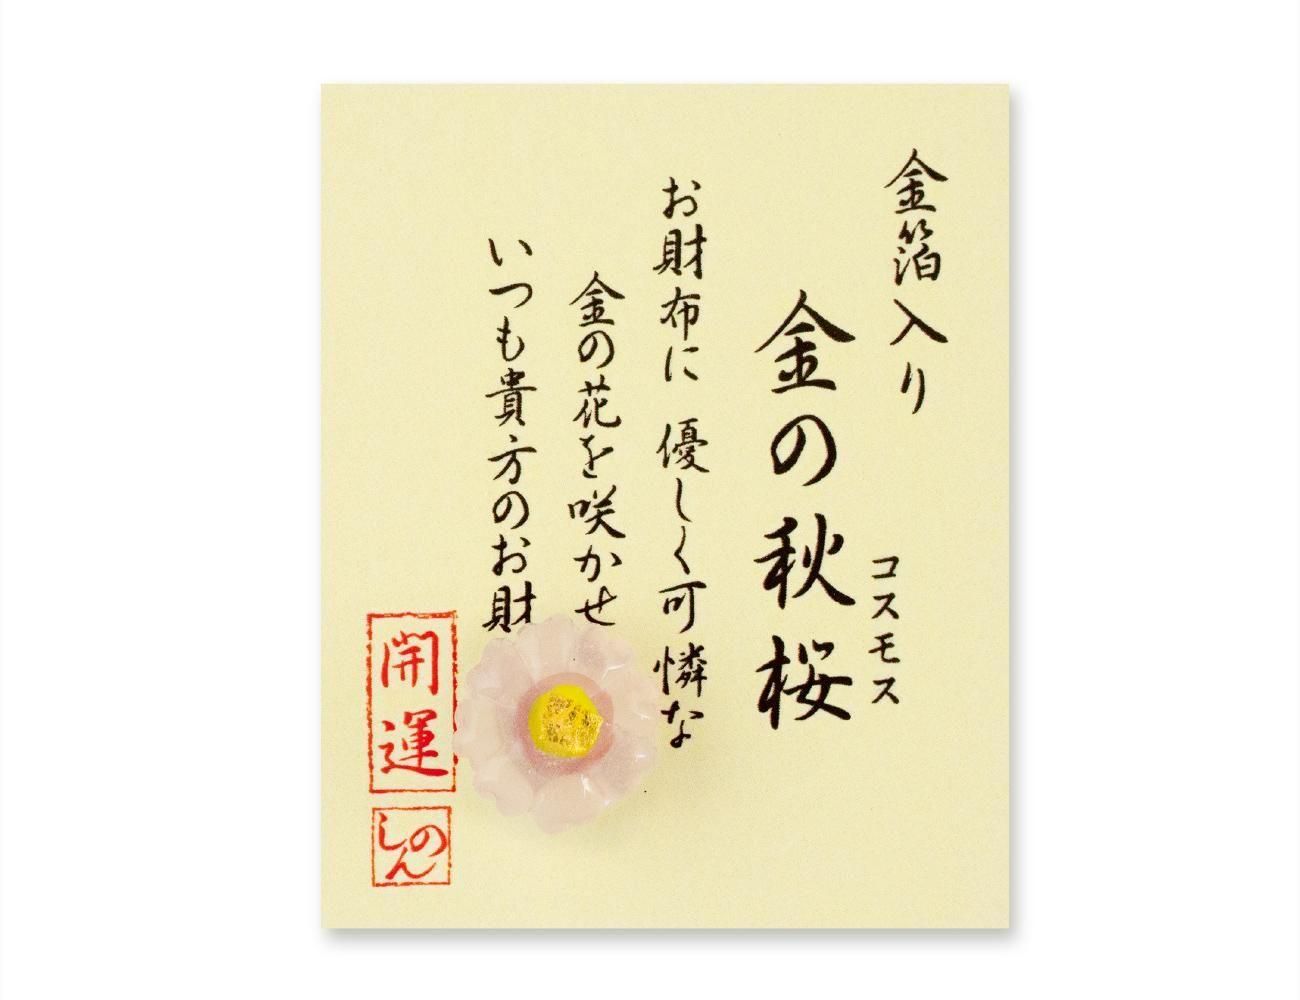 金箔入り
コスモス
金の秋桜
お財布に 優しく可憐な
金の花を咲かせ
いつも貴方のお財
開運
しのん